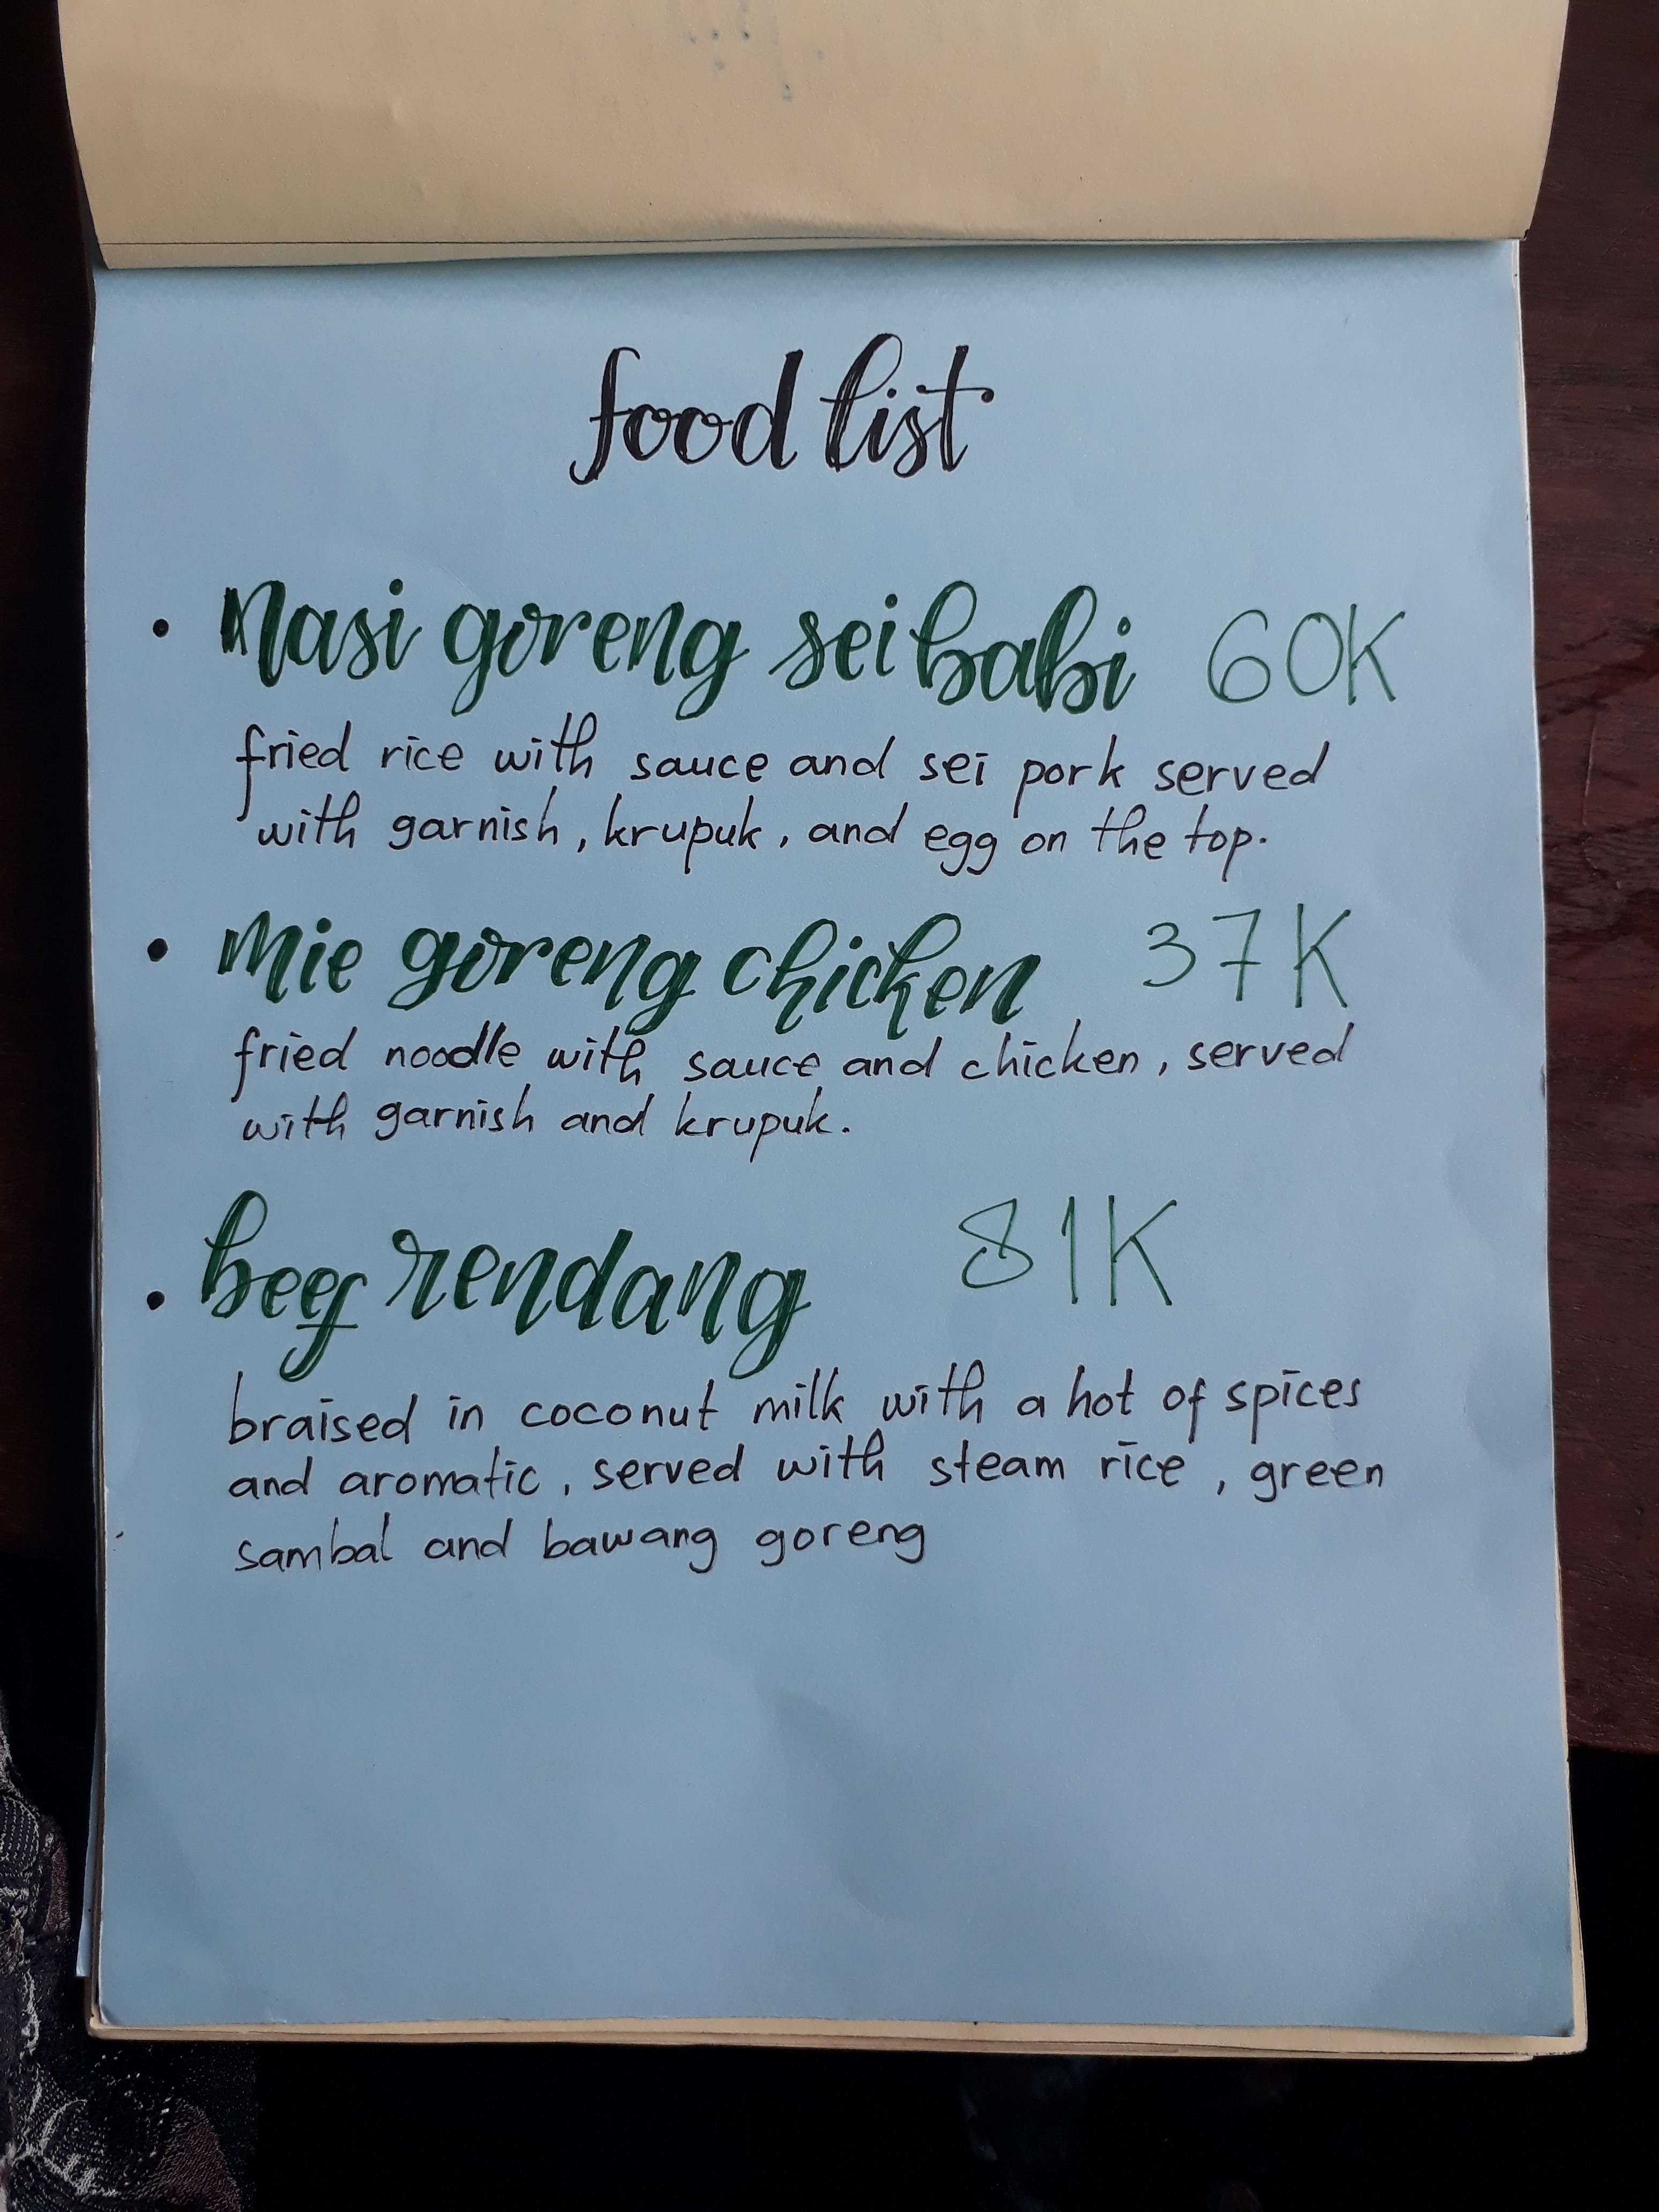 food list
• Nasi goreng sei babi 60K
fried rice with sauce and sei pork served
with garnish, krupuk, and egg on the top.
• Mie goreng chicken 37K
fried noodle with sauce and chicken, served
with garnish and krupuk.
• beef rendang 81K
braised in coconut milk with a hot of spices
and aromatic, served with steam rice, green
sambal and bawang goreng